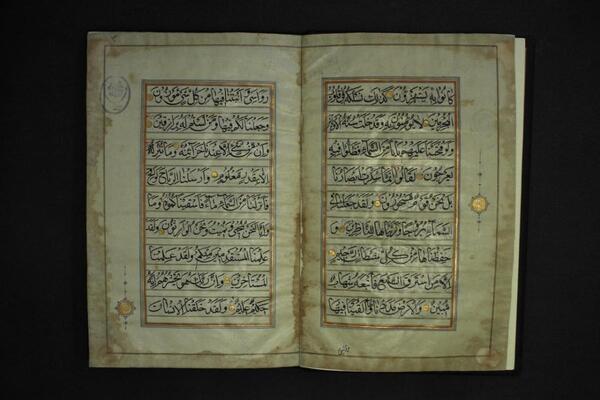 كانوا به يستهزؤن كذلك نسلكه في قلوب
المجرمين لا يؤمنون به وقد خلت سنة الاولين
ولو فتحنا عليهم بابا من السماء فظلوا فيه
يعرجون لقالوا انما سكرت ابصارنا
بل نحن قوم مسحورون ولقد جعلنا في
السماء بروجا وزيناها للناظرين و
حفظناها من كل شيطان رجيم
الا من استرق السمع فاتبعه شهاب
مبين والارض مددناها والقينا فيها
رواسي وانبتنا فيها من كل شيء موزون
وجعلنا لكم فيها ومن لستم له برازقين
وان من شيء الا عندنا خزائنه وما ننزله
الا بقدر معلوم وارسلنا الرياح لواقح
فانزلنا من السماء ماء فاسقيناكموه وما
لنحن نحيي ونميت ونحن الوارثون ولقد
علمنا المستقدمين منكم ولقد علمنا
المستأخرين وان ربك هو يحشرهم انه
حكيم عليم ولقد خلقنا الانسان